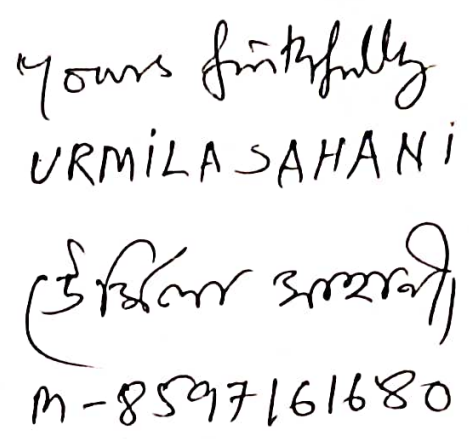 Yours faithfully
URMILA SAHANI
उर्मिला साहानी
M-8597161680